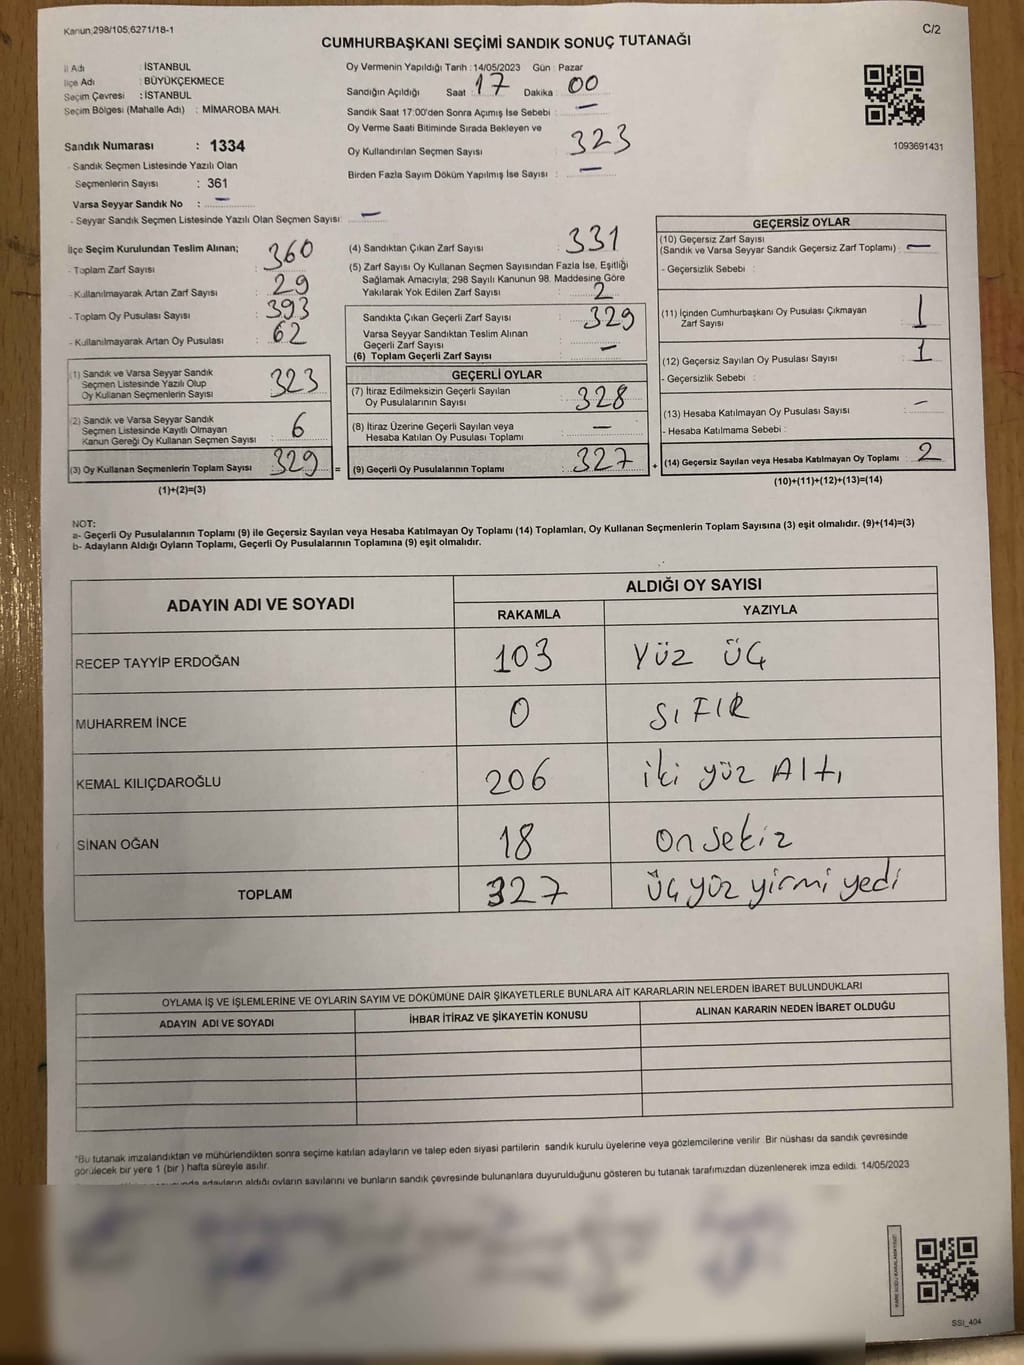 Kanun;298/105;6271/18-1
C/2
CUMHURBAŞKANI SEÇİMİ SANDIK SONUÇ TUTANAĞI
İl Adı : İSTANBUL
İlçe Adı : BÜYÜKÇEKMECE
Seçim Çevresi : İSTANBUL
Seçim Bölgesi (Mahalle Adı) : MİMAROBA MAH.
Sandık Numarası : 1334
- Sandık Seçmen Listesinde Yazılı Olan
Seçmenlerin Sayısı : 361
Varsa Seyyar Sandık No : —
- Seyyar Sandık Seçmen Listesinde Yazılı Olan Seçmen Sayısı: —
Oy Vermenin Yapıldığı Tarih : 14/05/2023 Gün : Pazar
Sandığın Açıldığı Saat : 17 Dakika : 00
Sandık Saat 17:00'den Sonra Açımış İse Sebebi : —
Oy Verme Saati Bitiminde Sırada Bekleyen ve
Oy Kullandırılan Seçmen Sayısı : 323
Birden Fazla Sayım Döküm Yapılmış İse Sayısı : —
1093691431
İlçe Seçim Kurulundan Teslim Alınan;
- Toplam Zarf Sayısı : 360
- Kullanılmayarak Artan Zarf Sayısı : 29
- Toplam Oy Pusulası Sayısı : 393
- Kullanılmayarak Artan Oy Pusulası : 62
(1) Sandık ve Varsa Seyyar Sandık
Seçmen Listesinde Yazılı Olup
Oy Kullanan Seçmenlerin Sayısı : 323
(2) Sandık ve Varsa Seyyar Sandık
Seçmen Listesinde Kayıtlı Olmayan
Kanun Gereği Oy Kullanan Seçmen Sayısı : 6
(3) Oy Kullanan Seçmenlerin Toplam Sayısı : 329
(1)+(2)=(3)
(4) Sandıktan Çıkan Zarf Sayısı : 331
(5) Zarf Sayısı Oy Kullanan Seçmen Sayısından Fazla İse, Eşitliği
Sağlamak Amacıyla, 298 Sayılı Kanunun 98. Maddesine Göre
Yakılarak Yok Edilen Zarf Sayısı : 2
Sandıkta Çıkan Geçerli Zarf Sayısı : 329
Varsa Seyyar Sandıktan Teslim Alınan
Geçerli Zarf Sayısı : —
(6) Toplam Geçerli Zarf Sayısı :
GEÇERLİ OYLAR
(7) İtiraz Edilmeksizin Geçerli Sayılan
Oy Pusulalarının Sayısı : 328
(8) İtiraz Üzerine Geçerli Sayılan veya
Hesaba Katılan Oy Pusulası Toplamı : —
= (9) Geçerli Oy Pusulalarının Toplamı : 327
GEÇERSİZ OYLAR
(10) Geçersiz Zarf Sayısı
(Sandık ve Varsa Seyyar Sandık Geçersiz Zarf Toplamı) : —
- Geçersizlik Sebebi :
(11) İçinden Cumhurbaşkanı Oy Pusulası Çıkmayan
Zarf Sayısı : 1
(12) Geçersiz Sayılan Oy Pusulası Sayısı : 1
- Geçersizlik Sebebi :
(13) Hesaba Katılmayan Oy Pusulası Sayısı : —
- Hesaba Katılmama Sebebi :
+ (14) Geçersiz Sayılan veya Hesaba Katılmayan Oy Toplamı : 2
(10)+(11)+(12)+(13)=(14)
NOT:
a- Geçerli Oy Pusulalarının Toplamı (9) ile Geçersiz Sayılan veya Hesaba Katılmayan Oy Toplamı (14) Toplamları, Oy Kullanan Seçmenlerin Toplam Sayısına (3) eşit olmalıdır. (9)+(14)=(3)
b- Adayların Aldığı Oyların Toplamı, Geçerli Oy Pusulalarının Toplamına (9) eşit olmalıdır.
ADAYIN ADI VE SOYADI
ALDIĞI OY SAYISI
RAKAMLA YAZIYLA
RECEP TAYYİP ERDOĞAN 103 YÜZ ÜÇ
MUHARREM İNCE 0 SIFIR
KEMAL KILIÇDAROĞLU 206 iki yüz Altı
SİNAN OĞAN 18 on sekiz
TOPLAM 327 üç yüz yirmi yedi
OYLAMA İŞ VE İŞLEMLERİNE VE OYLARIN SAYIM VE DÖKÜMÜNE DAİR ŞİKAYETLERLE BUNLARA AİT KARARLARIN NELERDEN İBARET BULUNDUKLARI
ADAYIN ADI VE SOYADI İHBAR İTİRAZ VE ŞİKAYETİN KONUSU ALINAN KARARIN NEDEN İBARET OLDUĞU
*Bu tutanak imzalandıktan ve mühürlendikten sonra seçime katılan adayların ve talep eden siyasi partilerin sandık kurulu üyelerine veya gözlemcilerine verilir. Bir nüshası da sandık çevresinde
görülecek bir yere 1 (bir) hafta süreyle asılır.
adayların aldığı oyların sayılarını ve bunların sandık çevresinde bulunanlara duyurulduğunu gösteren bu tutanak tarafımızdan düzenlenerek imza edildi. 14/05/2023
SSI_404